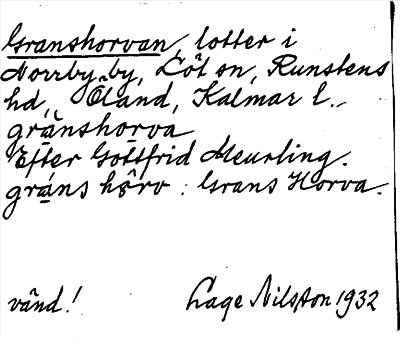 Granshorvan, lotter i
Norrby by, Löt sn, Runstens
hd, Öland, Kalmar l.
gränshorva
Efter Gottfrid Meurling.
gräns hörv : Grans Horva.
vänd! Lage Nilsson 1932